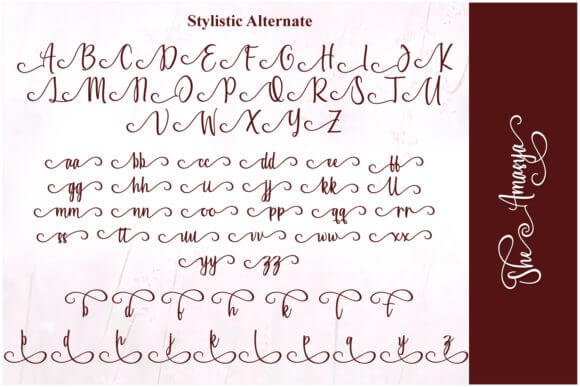 Stylistic Alternate
A B C D E F G H I J K
L M N O P Q R S T U
V W X Y Z
aa bb cc dd ee ff
gg hh ii jj kk ll
mm nn oo pp qq rr
ss tt uu vv ww xx
yy zz
b d f h k l t
b d h j k l p q y z
The Amasya